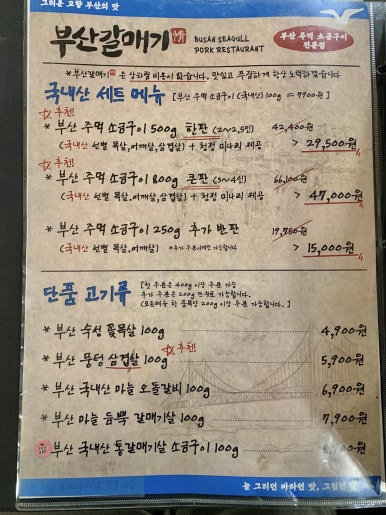 그리운 고향 부산의 맛
부산갈매기
BUSAN SEAGULL
PORK RESTAURANT
부산 주먹 소금구이
전문점
*부산갈매기 은 상차림 비용이 없습니다. 맛있고 푸짐하게 항상 노력하겠습니다
국내산 세트 메뉴 [부산 주먹 소금구이 (국내산) 100g = 7900원]
추천!
* 부산 주먹 소금구이 500g 한판 (2~2.5인) 42,400원
(국내산 선별 목살,어깨살,삼겹살) + 청정 미나리 제공 > 29,500원
추천!
* 부산 주먹 소금구이 800g 큰판 (3~4인) 66,100원
(국내산 선별 목살,어깨살,삼겹살) + 청정 미나리 제공 > 47,000원
* 부산 주먹 소금구이 250g 추가 반판 19,750원
(국내산 선별 목살,어깨살) *추가 주문시에만 가능합니다 > 15,000원
단품 고기류
[첫 주문은 400g 이상 주문 가능
추가 주문은 200g 단위로 가능합니다.
(모든메뉴 한 품목당 200g 이상 주문 가능합니다.)]
* 부산 숙성 꽃목살 100g 4,900원
추천!
* 부산 뭉텅 삼겹살 100g 5,900원
* 부산 국내산 마늘 오돌갈비 100g 6,900원
* 부산 마늘 듬뿍 갈매기살 100g 7,900원
부산 국내산 통갈매기살 소금구이 100g
늘 그리던 바라던 맛, 그립던